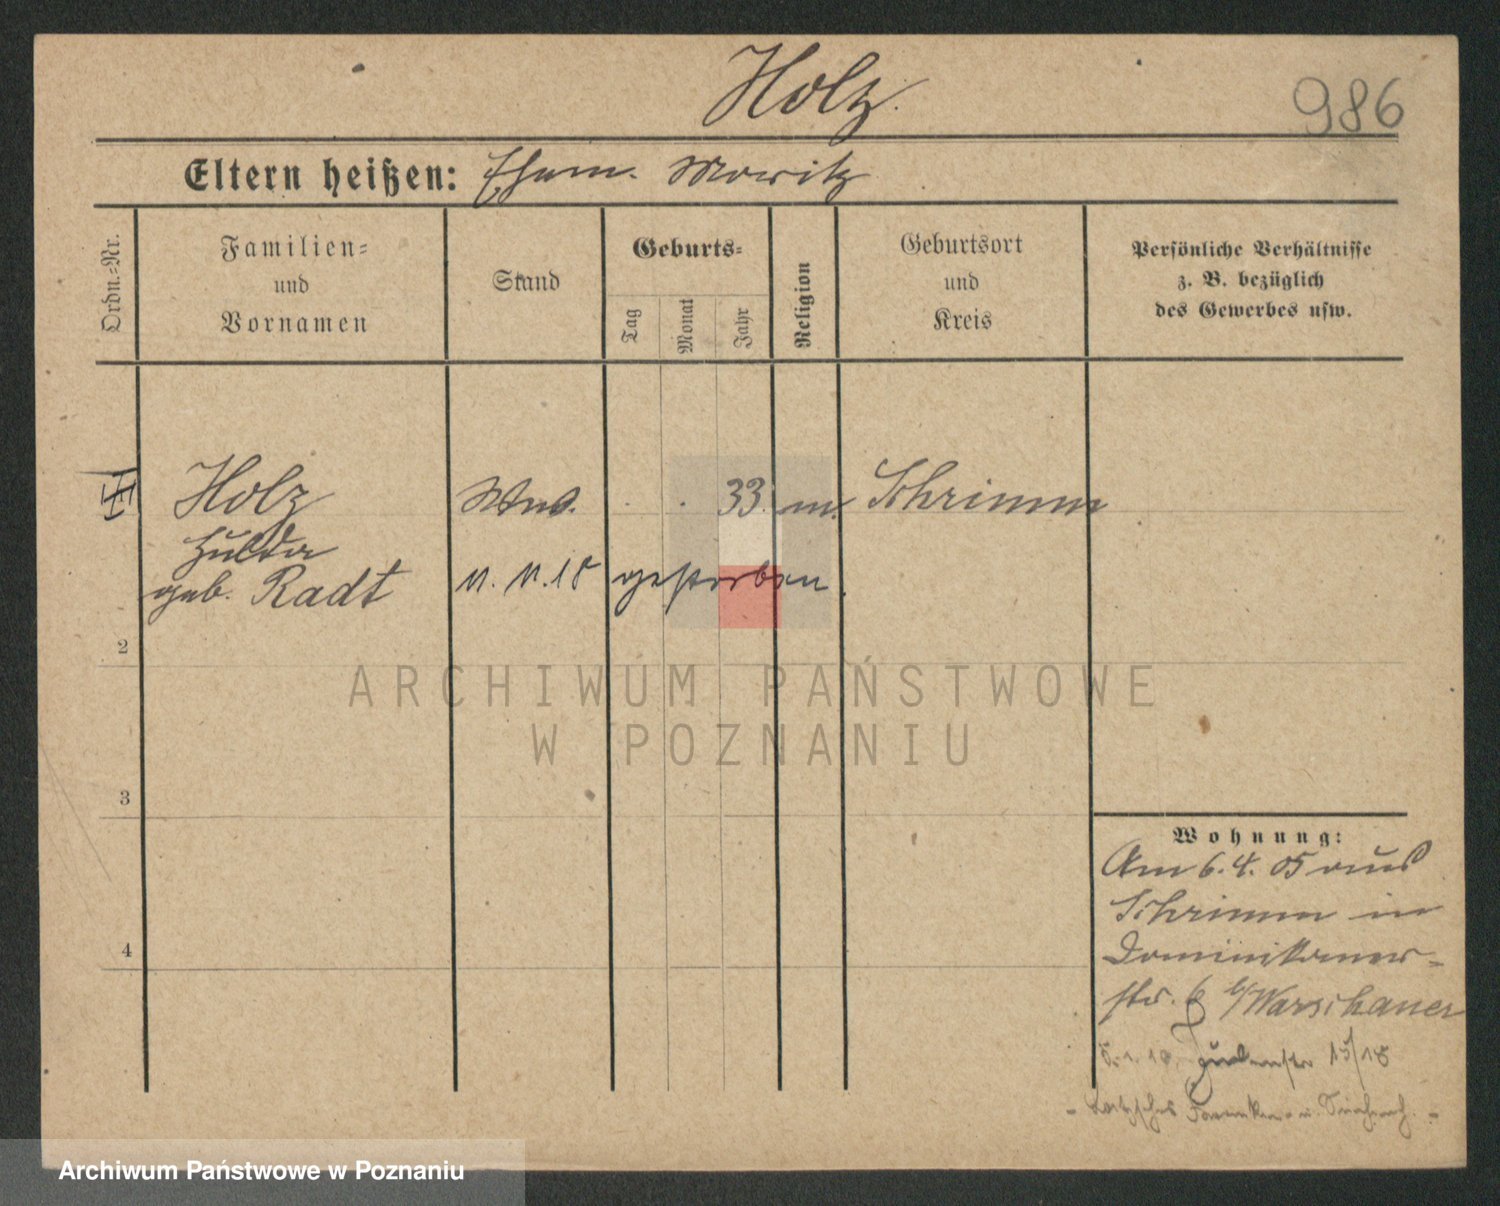 Holz.
986
Eltern heißen: Ehem. Moritz
Ordn.=Nr.
Familien=
und
Vornamen
Stand
Geburts=
Tag
Monat
Jahr
Religion
Geburtsort
und
Kreis
Persönliche Verhältnisse
z. B. bezüglich
des Gewerbes usw.
Holz Ww. . . 33. m. Schrimm
Hulda
geb. Radt 11. 11. 18 gestorben.
2
3
4
ARCHIWUM PAŃSTWOWE
W POZNANIU
Wohnung:
Am 6. 4. 05 aus
Schrimm in
Dominikaner-
str. 6 b/Warschauer
Judenstr 15/18
Archiwum Państwowe w Poznaniu